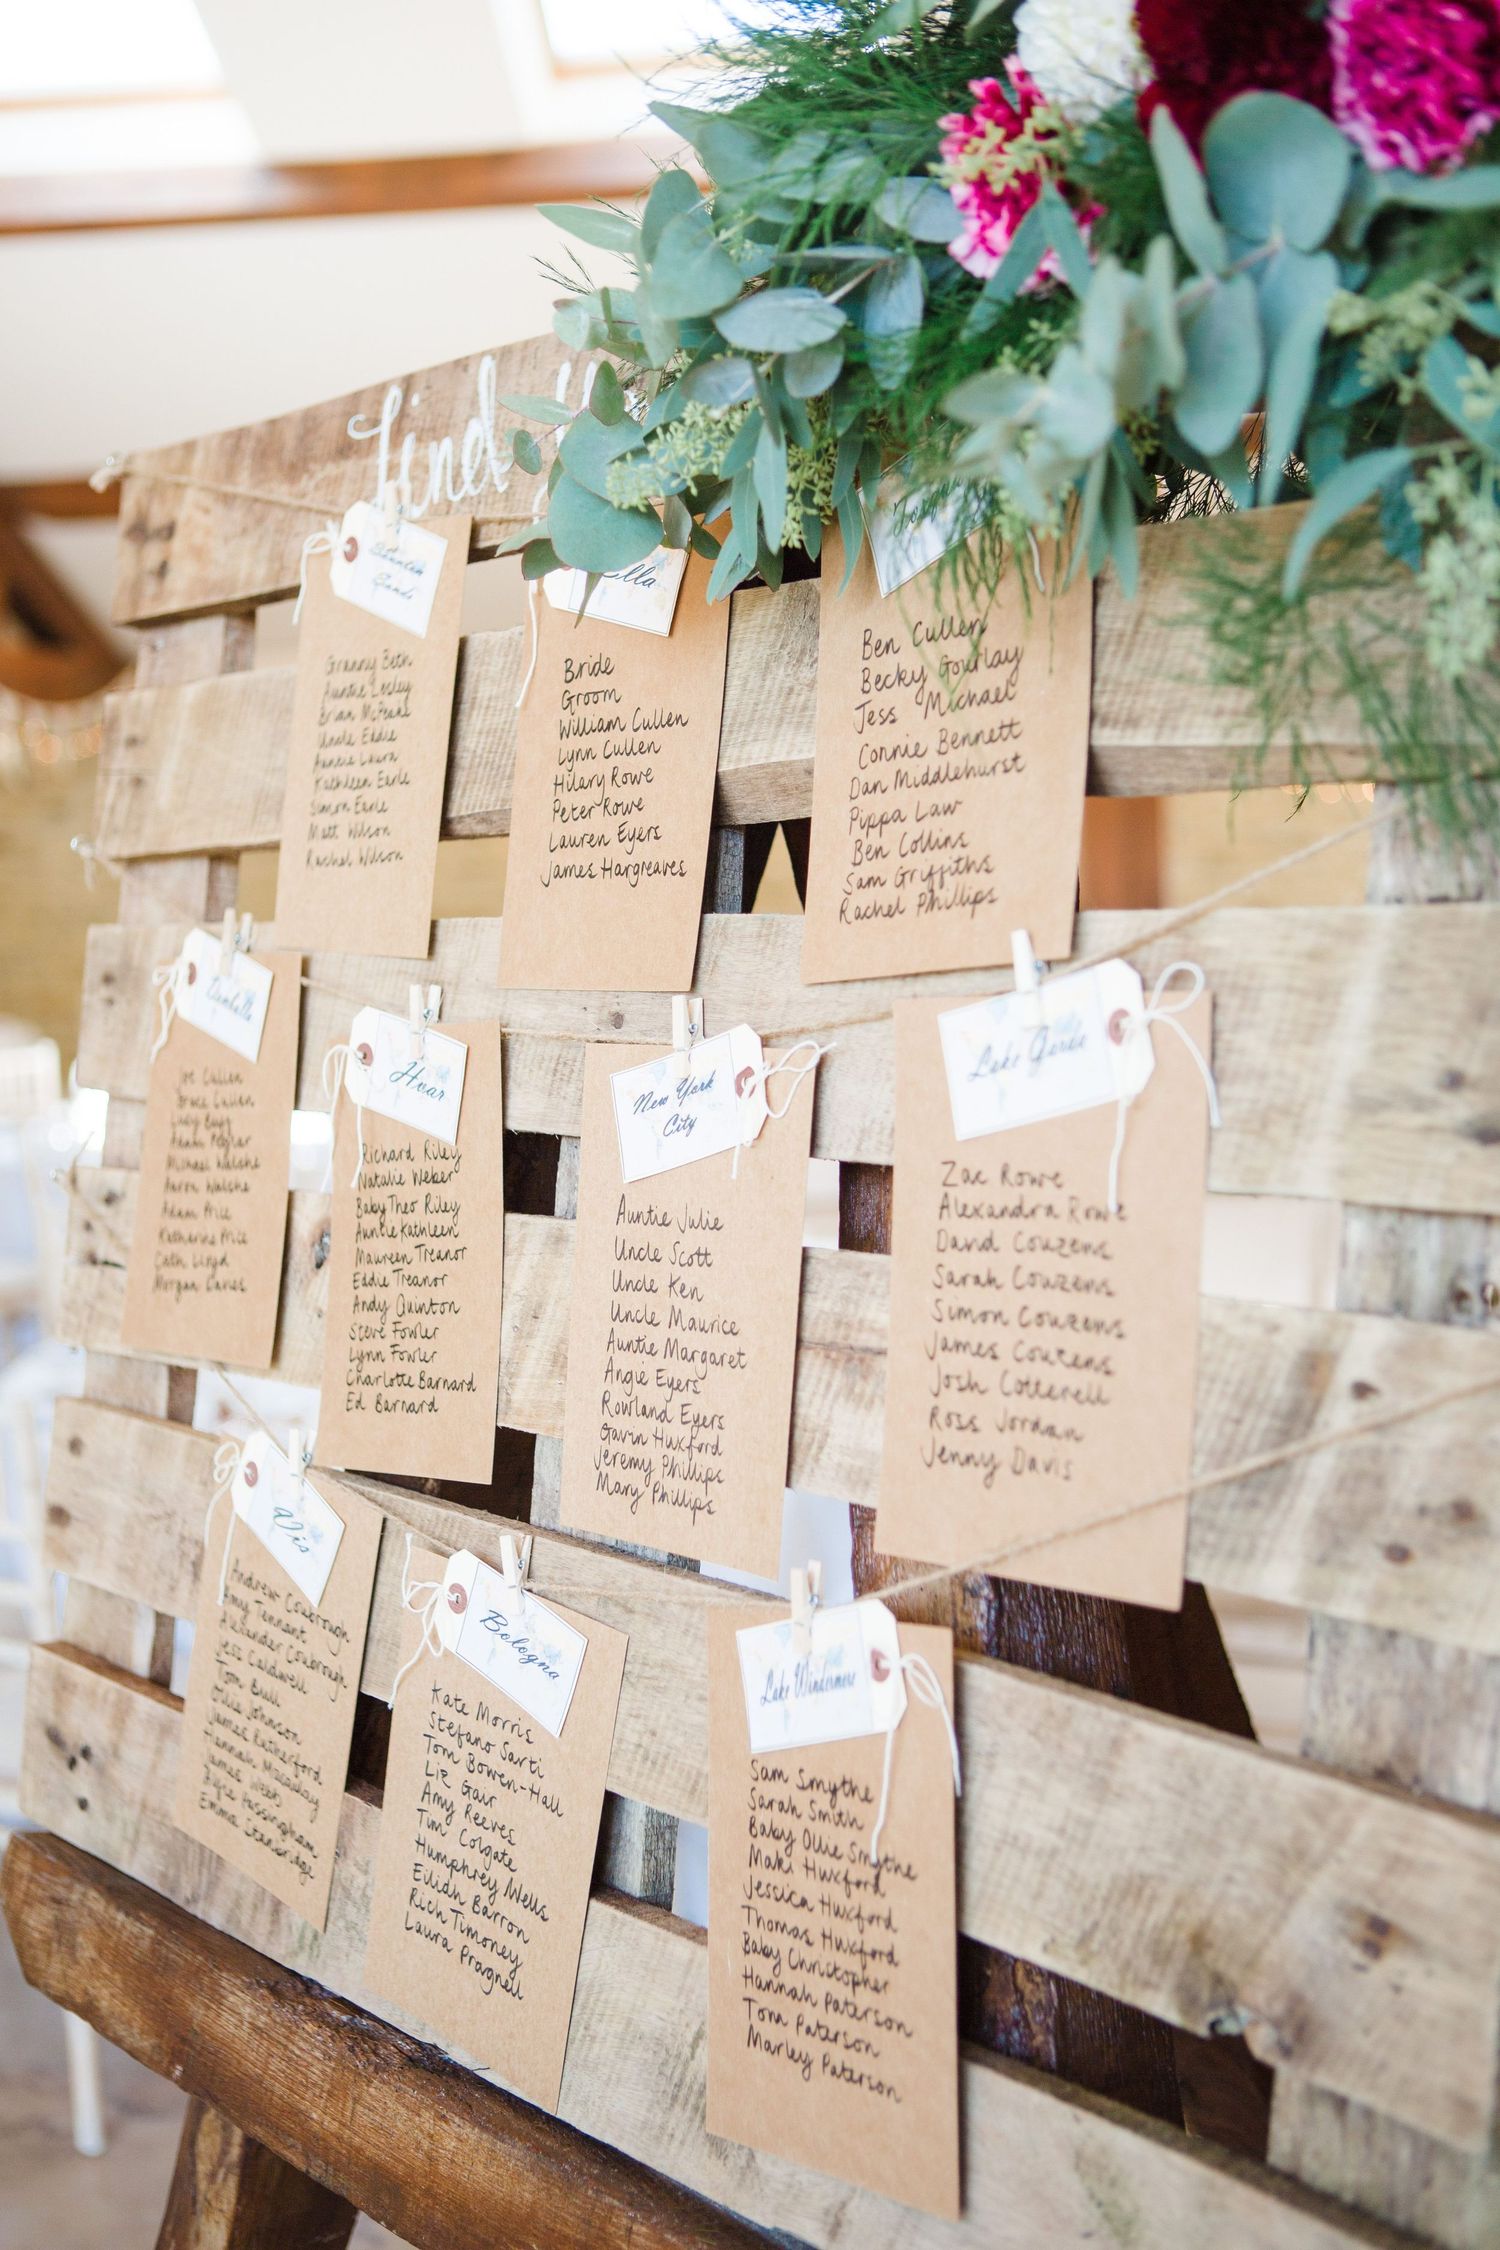 Find
Granny Beth
Auntie Lesley
Brian McPeake
Uncle Eddie
Auntie Laura
Kathleen Earle
Simon Earle
Matt Wilson
Rachel Wilson
Bride
Groom
William Cullen
Lynn Cullen
Hilary Rowe
Peter Rowe
Lauren Eyers
James Hargreaves
Ben Cullen
Becky Gourlay
Jess Michael
Connie Bennett
Dan Middlehurst
Pippa Law
Ben Collins
Sam Griffiths
Rachel Phillips
Joe Cullen
Bruce Cullen
Adam
Michael Walshe
Aaron Walshe
Adam Price
Katherine Price
Cath Lloyd
Morgan Davies
Hvar
Richard Riley
Natalie Weber
Baby Theo Riley
Auntie Kathleen
Maureen Treanor
Eddie Treanor
Andy Quinton
Steve Fowler
Lynn Fowler
Charlotte Barnard
Ed Barnard
New York
City
Auntie Julie
Uncle Scott
Uncle Ken
Uncle Maurice
Auntie Margaret
Angie Eyers
Rowland Eyers
Gavin Huxford
Jeremy Phillips
Mary Phillips
Lake Garda
Zac Rowe
Alexandra Rowe
David Couzens
Sarah Couzens
Simon Couzens
James Couzens
Josh Cotterell
Ross Jordan
Jenny Davis
Vis
Andrew Conbrough
Amy Tennant
Alexander Conbrough
Jess Caldwell
Tom Bull
Ollie Johnson
James Rutherford
Hannah Macaulay
James Weeks
Kyre Hassingham
Emma Stanbridge
Bologna
Kate Morris
Stefano Sarti
Tom Bowen-Hall
Liz Gair
Amy Reeves
Tim Colgate
Humphrey Wells
Eilidh Barron
Rich Timoney
Laura Pragnell
Lake Windermere
Sam Smythe
Sarah Smith
Baby Ollie Smythe
Maki Huxford
Jessica Huxford
Thomas Huxford
Baby Christopher
Hannah Paterson
Tom Paterson
Marley Paterson